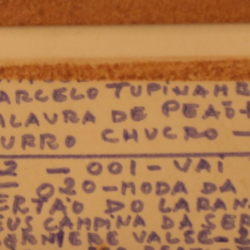 ARCELO TUPINAMB
ALAVRA DE PEÃO-B
URRO CHUCRO —
2 - 001 - VAI
- 020 - MODA DA
ERTÃO DO LARAN
EUS CAMPINA DA SER
DERNIERE VALSE -